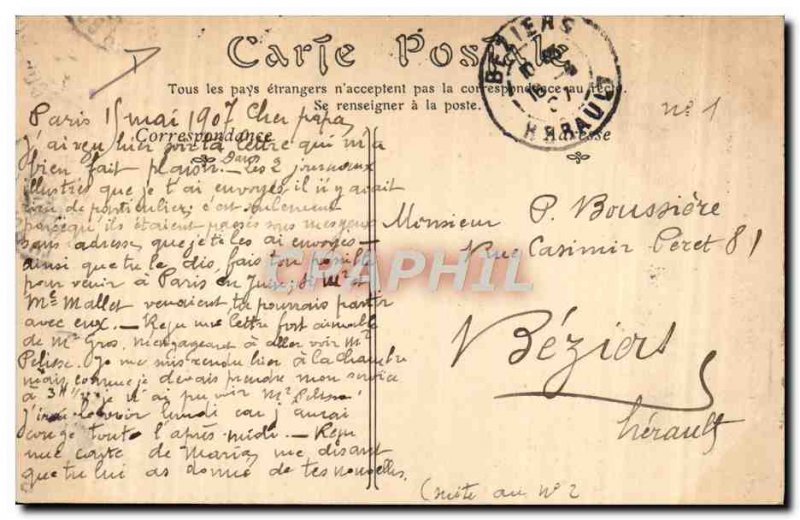 Carte Postale
Tous les pays étrangers n'acceptent pas la correspondance au recto.
Se renseigner à la poste.
BÉZIERS
HÉRAULT
n° 1
Correspondance
Adresse
Paris 15 mai 1907 Cher papa,
J'ai reçu hier soir ta lettre qui m'a
bien fait plaisir. Dans les 2 journaux
illustrés que je t'ai envoyés il n'y avait
rien de particulier, c'est seulement
parcequ'ils étaient passés sous mes yeux
sans adresse, que je te les ai envoyés –
ainsi que tu le dis, fais ton possible
pour venir à Paris en Juin; si Mr et
Me Mallet venaient tu pourrais partir
avec eux. – Reçu une lettre fort aimable
de Mr Gros, m'engageant à aller voir Mr
Pelisse. Je me suis rendu hier à la chambre
mais comme je devais prendre mon service
à 3H je n'ai pu voir Mr Pelisse
J'irai le voir lundi car j'aurai
congé toute l'après midi. – Reçu
une carte de Maria me disant
que tu lui as donné de tes nouvelles.
Monsieur P. Boussière
Rue Casimir Péret 81
Béziers
Hérault
(suite au n° 2
CPAPHIL